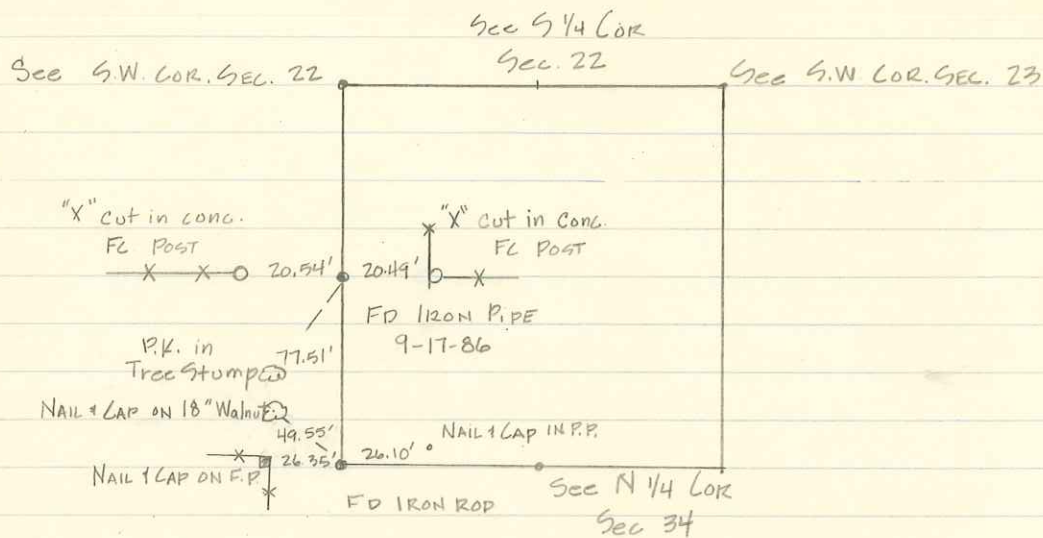 See S 1/4 COR
Sec. 22
See S.W. COR. SEC. 22
See S.W COR. SEC. 23
"X" cut in conc.
FC POST
20.54'
20.49'
"X" cut in conc.
FC POST
FD IRON PIPE
9-17-86
P.K. in
Tree Stump
77.51'
NAIL & CAP ON 18" Walnut
49.55'
NAIL & CAP ON F.P.
26.35'
26.10'
NAIL & CAP IN P.P.
FD IRON ROD
See N 1/4 COR
Sec 34